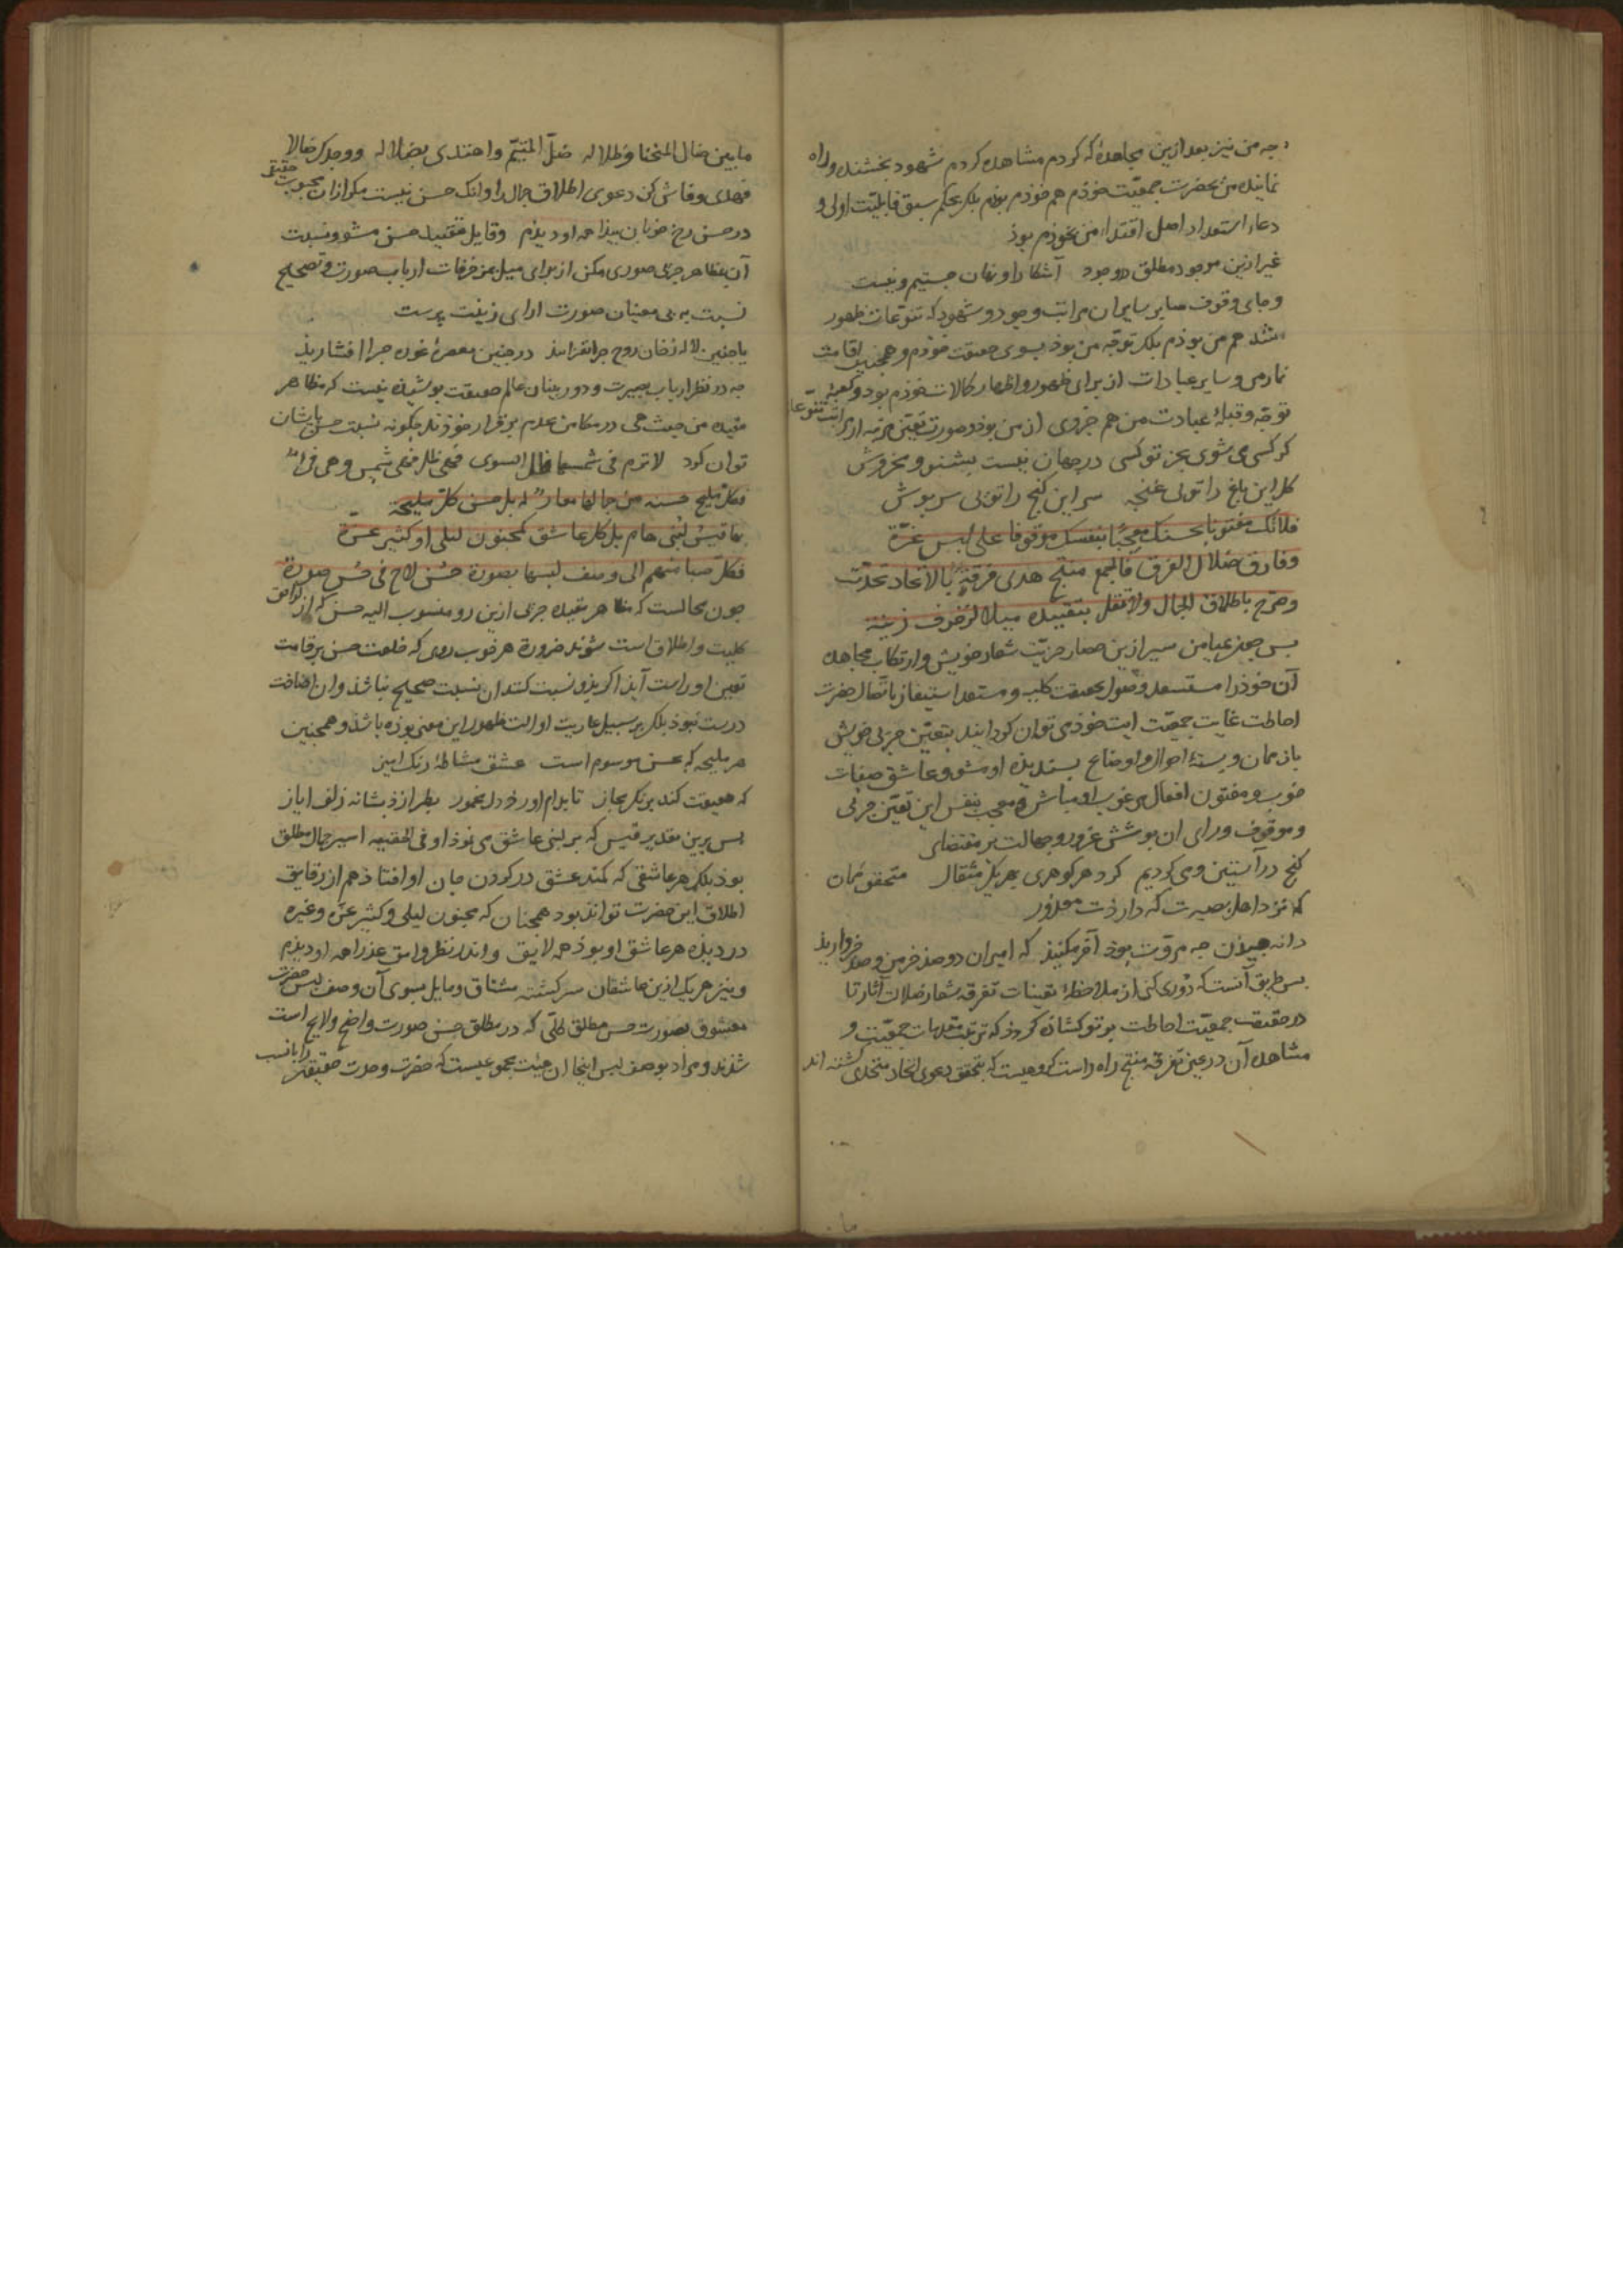 چه من نیز بعد ازین مجاهدهٔ که کردم مشاهده کردم شهود بخشنده و راه
نماینده من بحضرت جمعیّت خودم هم خودم بوذم بلکه بحکم سبق قابلیّت اولی و
دعاء استعداد اصل اقتداء من بخوذم بوذ
غیر ازین موجود مطلق در وجود آشکارا و نهان جستیم و نیست
و جای وقوف سایر سایران مراتب وجود و شهود که تنوّعات ظهور
هم من بوذم بلکه توجّه من بوذ بسوی حقیقت خوذم و همچنین اقامت
نمازمی و سایر عبادات از برای ظهور و اظهار کمالات خوذم بود و کعبهٔ
توجّه و قبلهٔ عبادت من هم جزوی از من بوذ و صورت تعیّنی جزئیه از مراتب تنوّعا
کر کسی می شوی بجز تو کسی در جهان نیست بشنو و مخروش
کل این باغ را توئی غنچه سر این کنج را توئی سرپوش
فلاتک مفتونا بحسنک معجبا بنفسک موقوفا علی لبس غرّة
وفارق ضلال الفرق فالجمع منتج هدی فرقة بالاتحاد تحدّت
وصرّح باطلاق الجمال ولا تقل بتقییده میلا لزخرف زینة
آن خوذ را مستسعد وصول بحقیقت کلیه و مستعد استیفاز باتصال حضرت
احاطت غایت جمعیّت ایت خوذ می توان کردانید بتعیّن جزئی خویش
باز ممان و بستهٔ احوال و اوضاع بسندیذه او مشو و عاشق صفات
خوب و مفتون افعال مرغوب او مباش و معجب بنفس این تعیّن جزئی
و موقوف ورای ان بوشش غرور و جهالت بر مقتضای
کنج در آستین و می کردیم کرد هر کوهری بهر یک مثقال متحقق ممان
که نزد اهل بصیرت که دارذت معذور
دانه جیذن چه مروّت بوذ آخر مکنید که امیران دو صد خرمن و صد خرواریذ
بس طریق آنست که دوری کنی از ملاحظهٔ تعینات تفرقه شعار ضلالت آثار تا
در حقیقت جمعیّت احاطت بر تو کشاذه کردذ که ترتب مقدمات جمعیّت و
مشاهده آن در عین تفرقه منتج راه راست کروهیست که بتحقق دعوی اتحاد متحدی کشته اند
ما بین ضال المنحنا وظلاله ضلّ المتیّم واهتدی بضلاله ووجدک ضالا
فهدی و فاش کن دعوی اطلاق جمال را و انک حسن نیست مکر از ان محبوب حقیقی
در حسن رخ خوبان بیذا همه او دیذم و قایل بتقیید حسن مشو و نسبت
آن بمظاهر جزئی صوری مکن از برای میل بمزخرفات ارباب صورت و تصحیح
نسبت به بی معنیان صورت ارای زینت پرست
با چنین لاله رخان روح چرا نفزایذ در چنین معصرهٔ غوره چرا افشاریذ
چه در نظر ارباب بصیرت و دوربینان عالم حقیقت بوشیذه نیست که مظاهر
مقیده من حیث هی در مکامن عدم برقرار خوذند چکونه نسبت حسن بایشان
توان کرد لا ترم فی شمسها ظل السوی فهی شمس و هی ظل و هی فی
فکلّ ملیح حسنه من جمالها معار له بل حسن کلّ ملیحة
بها قیس لبنی هام بل کل عاشق کمجنون لیلی او کثیر عزّة
فکلّ صبا منهم الی وصف لبسها بصورة حسن لاح فی حسن صورة
چون محالست که مظاهر مقیده جزئی ازین رو منسوب الیه حسن که از لواحق
کلیت و اطلاق است شوند ضرورة هر خوب روی که خلعت حسن بر قامت
تعین او راست آیذ اکر بذو نسبت کنند ان نسبت صحیح نباشد و ان اضافت
درست نبوذ بلکه بر سبیل عاریت او الت ظهور این معنی بوذه باشد و همچنین
هر ملیحه که بحسن موسوم است عشق مشاطهٔ رنک امیز
که حقیقت کند برنک مجاز تا بدام اورذ دل محمود بطرازذ بشانه زلف ایاز
بس برین تقدیر قیس که بر لبنی عاشق می نموذ او فی الحقیقه اسیر جمال مطلق
بوذ بلکه هر عاشقی که کمند عشق در کردن جان او افتاذ هم از رقایق
اطلاق این حضرت تواند بود همچنان که مجنون لیلی و کثیر عزّه و غیره
در دیذه هر عاشق او بوذ همه لایق و اندر نظر وامق عذرا همه او دیذم
و نیز هر یک ازین عاشقان سرکشته مشتاق و مایل بسوی آن وصف لبس حضرت
معشوق بصورت حسن مطلق کلّی که در مطلق حسن صورت واضح و لایح است
شدند و مراد بوصف لبس اینجا ان هیئت مجموعیست که حضرت وحدت حقیقی را